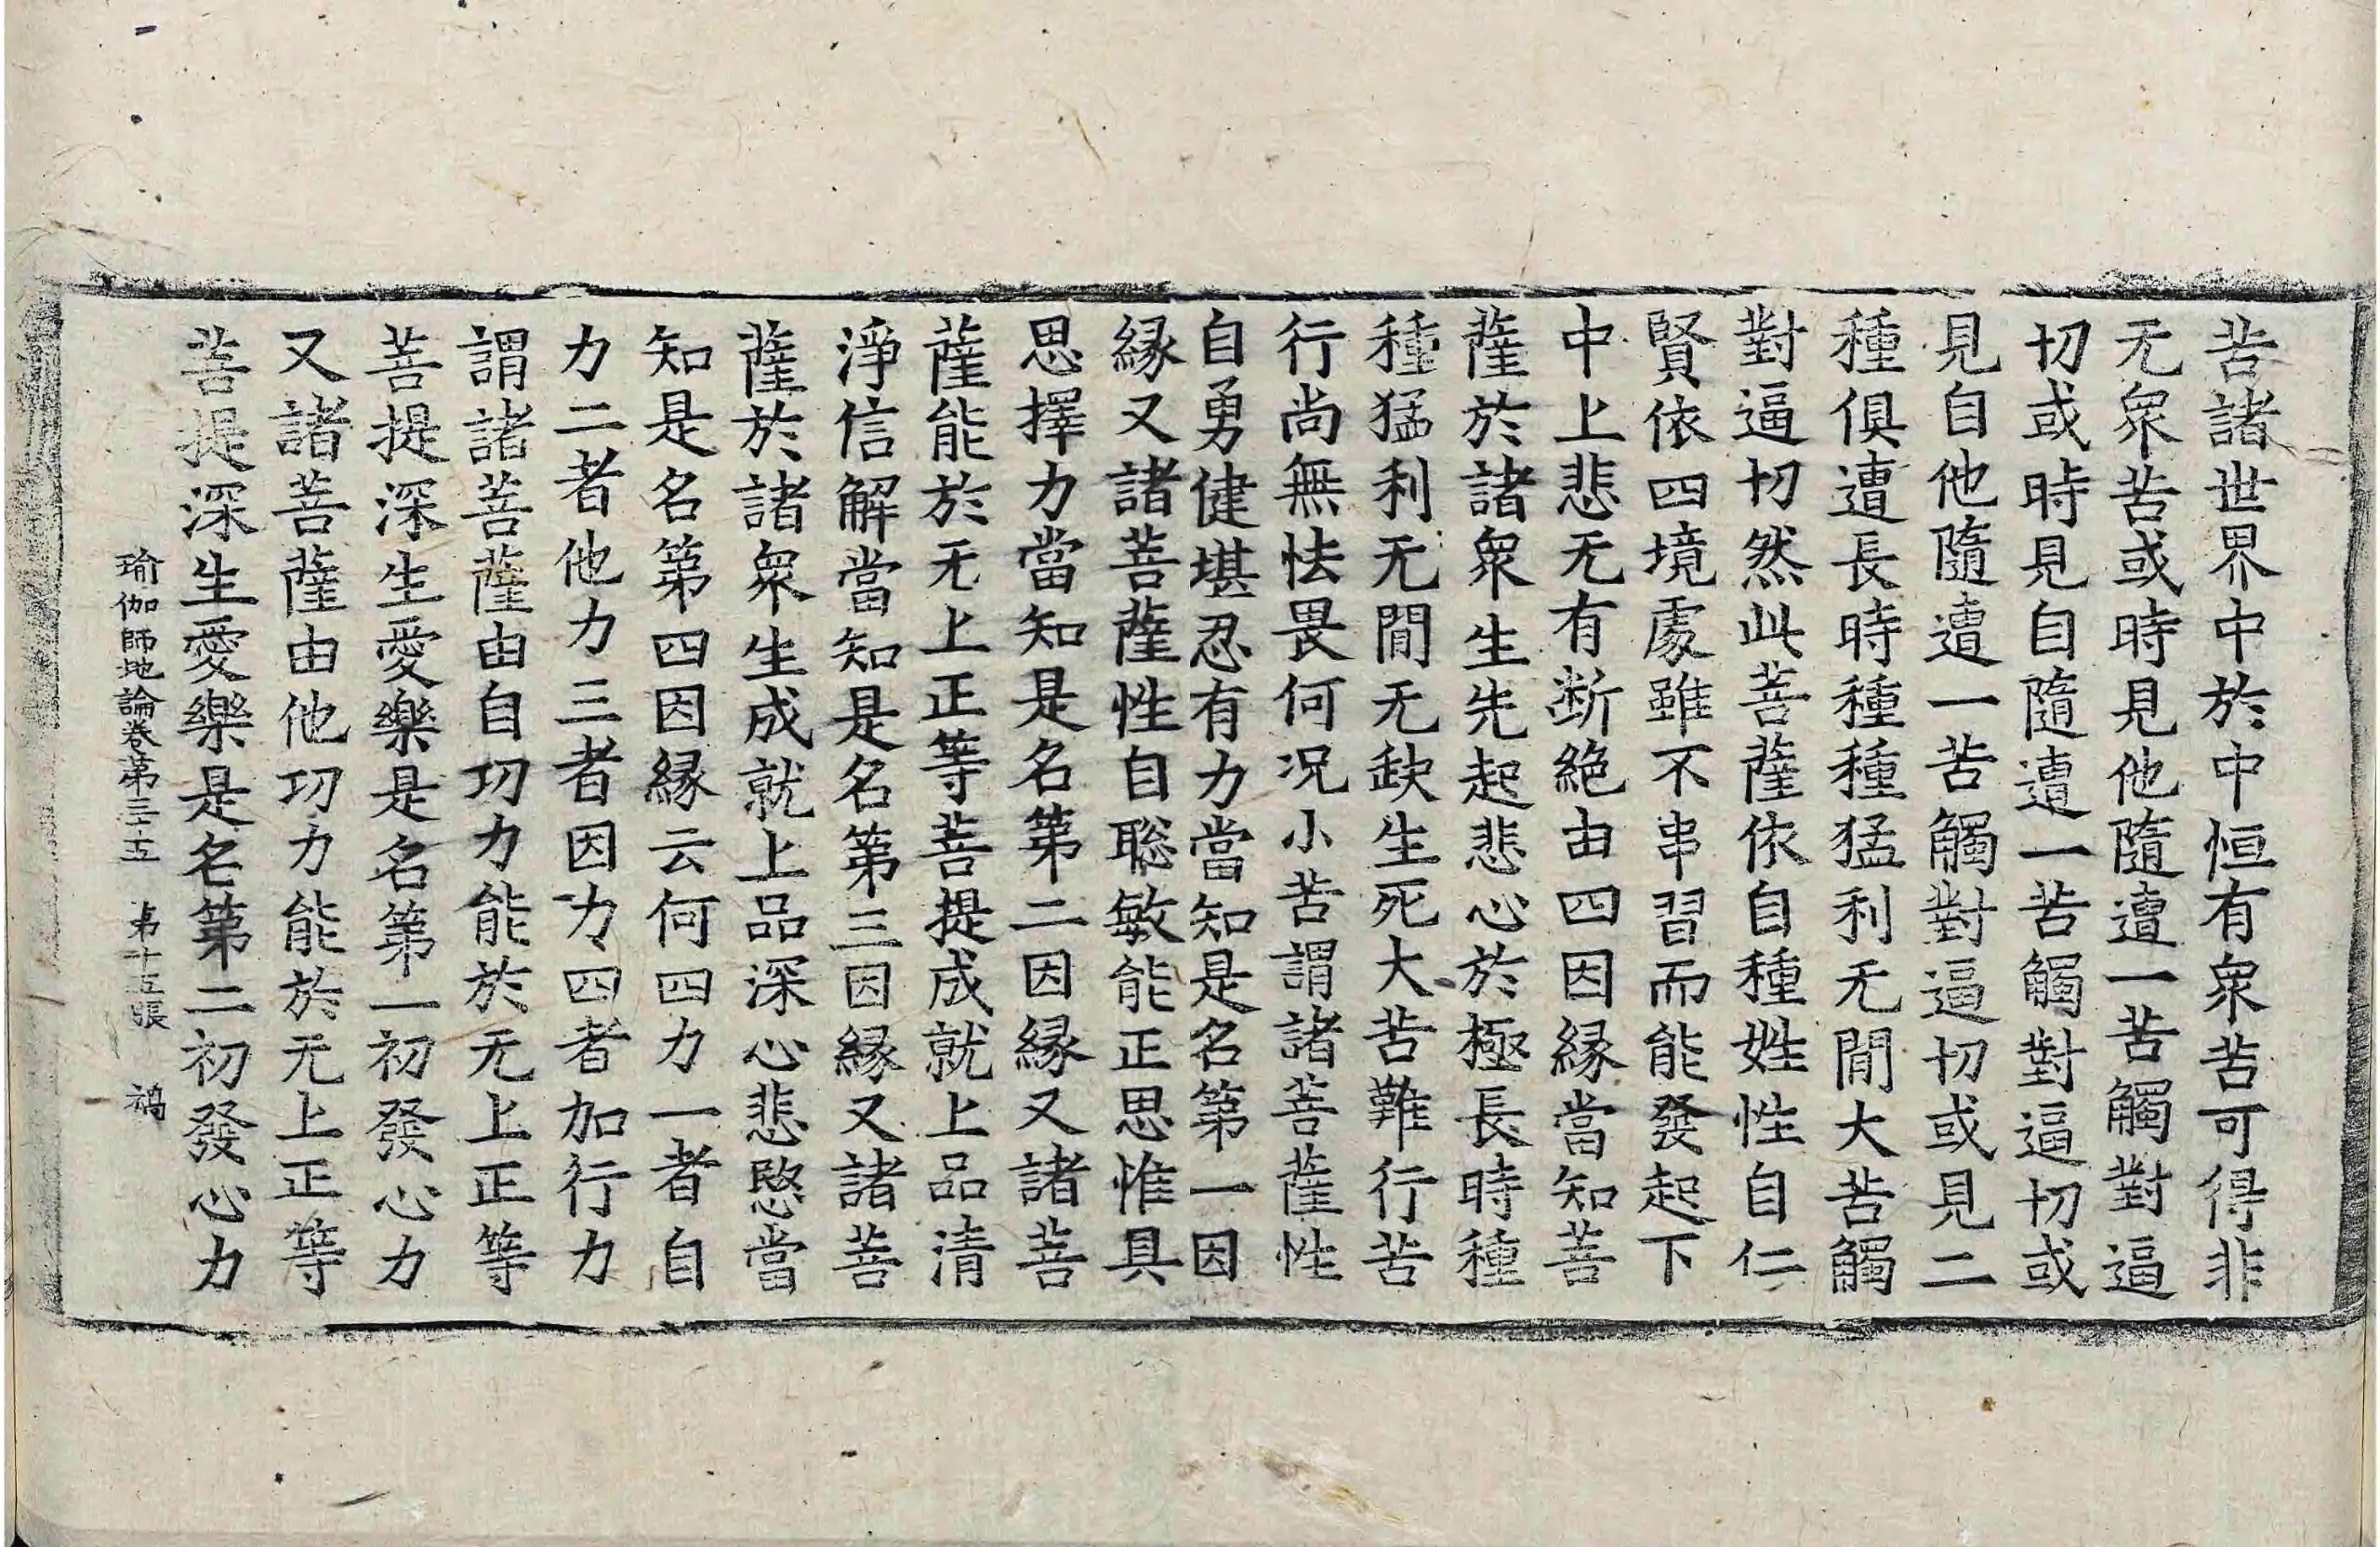 苦諸世界中於中恒有衆苦可得非
无衆苦或時見他隨遭一苦觸對逼
切或時見自隨遭一苦觸對逼切或
見自他隨遭一苦觸對逼切或見二
種俱遭長時種種猛利无閒大苦觸
對逼切然此菩薩依自種姓性自仁
賢依四境處雖不串習而能發起下
中上悲无有断絶由四因縁當知菩
薩於諸衆生先起悲心於極長時種
種猛利无閒无缺生死大苦難行苦
行尚無怯畏何况小苦謂諸菩薩性
自勇健堪忍有力當知是名第一因
縁又諸菩薩性自聡敏能正思惟具
思擇力當知是名第二因縁又諸菩
薩能於无上正等菩提成就上品清
淨信解當知是名第三因縁又諸菩
薩於諸衆生成就上品深心悲愍當
知是名第四因縁云何四力一者自
力二者他力三者因力四者加行力
謂諸菩薩由自功力能於无上正等
菩提深生愛樂是名第一初發心力
又諸菩薩由他功力能於无上正等
菩提深生愛樂是名第二初發心力
瑜伽師地論卷第三十五 第十五張 禍